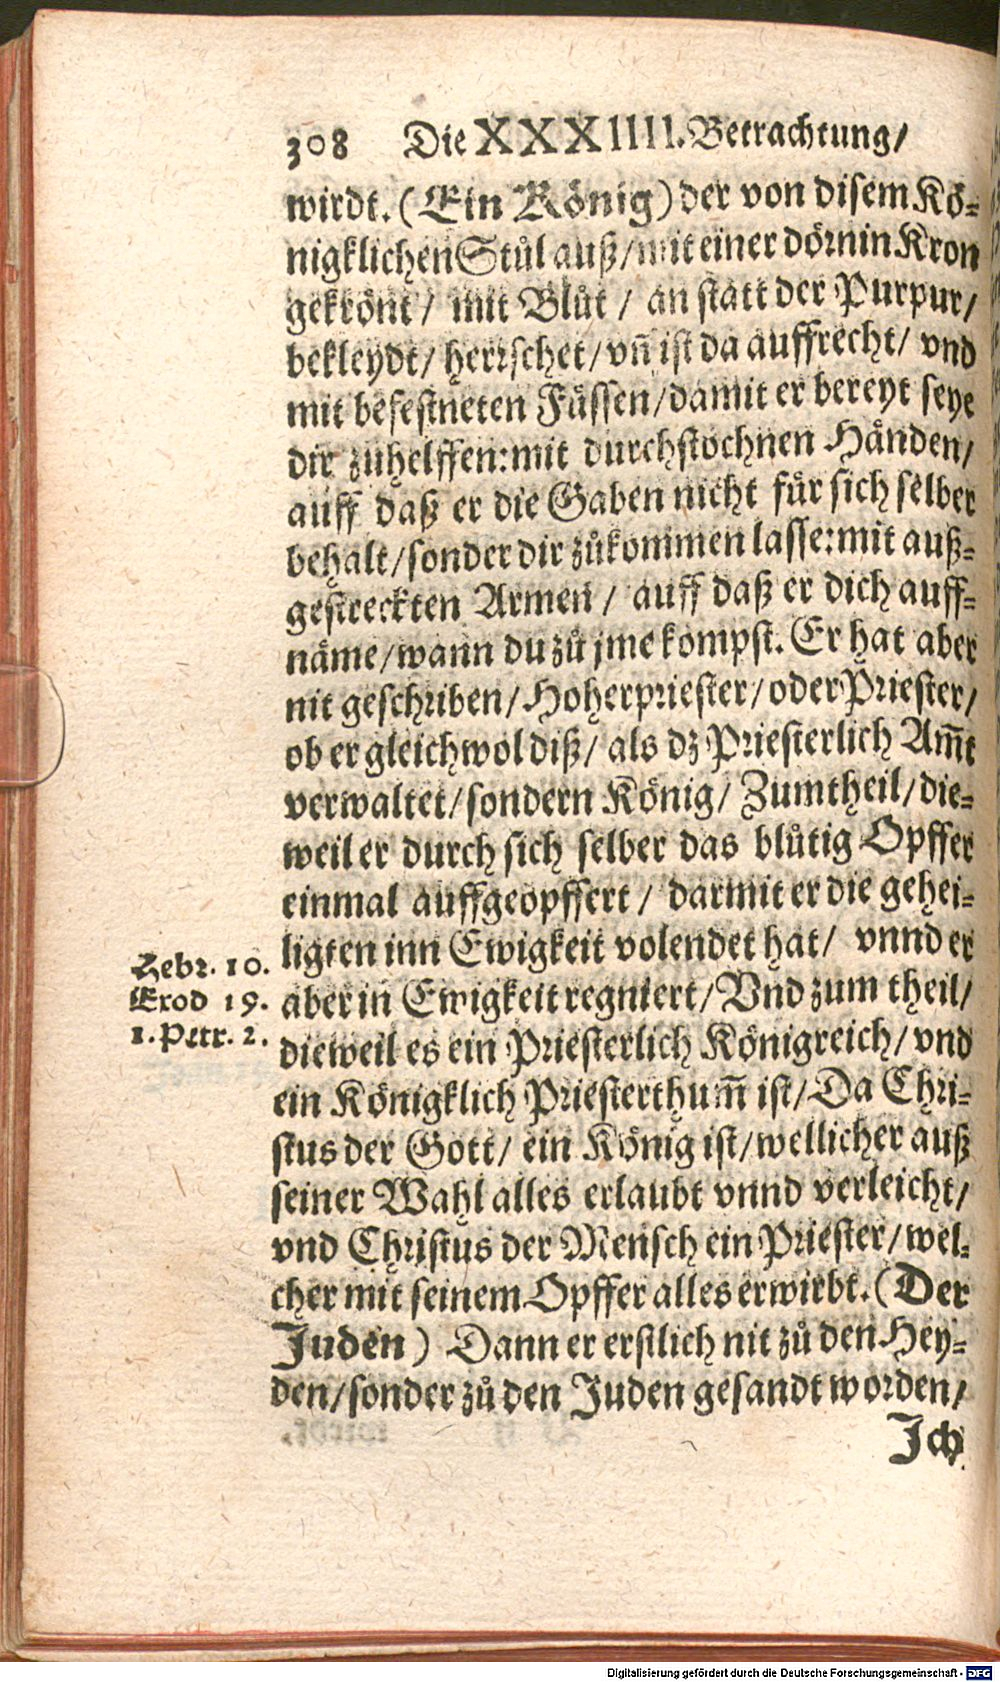 308 Die XXXIIII. Betrachtung/
wirdt. (Ein König) der von disem Kö⸗
nigklichen Stůl auß/ mit einer dörnin Kron
gekrönt/ mit Blůt/ an statt der Purpur/
bekleydt/ herrschet/ vñ ist da auffrecht/ vnd
mit befestneten Füssen/ damit er bereyt seye
dir zuhelffen: mit durchstochnen Händen/
auff daß er die Gaben nicht für sich selber
behalt/ sonder dir zůkommen lasse: mit auß⸗
gestreckten Armen/ auff daß er dich auff⸗
näme/ wann du zů jme kompst. Er hat aber
nit geschriben/ Hoherpriester/ oder Priester/
ob er gleichwol diß/ als dz Priesterlich Am̃t
verwaltet/ sondern König/ Zumtheil/ die⸗
weil er durch sich selber das blůtig Opffer
einmal auffgeopffert/ darmit er die gehei⸗
ligten inn Ewigkeit volendet hat/ vnnd er
aber in Ewigkeit regniert/ Vnd zum theil/
dieweil es ein Priesterlich Königreich/ vnd
ein Königklich Priesterthum̃ ist/ Da Chri⸗
stus der Gott/ ein König ist/ wellicher auß
seiner Wahl alles erlaubt vnnd verleicht/
vnd Christus der Mensch ein Priester/ wel⸗
cher mit seinem Opffer alles erwirbt. (Der
Juden) Dann er erstlich nit zů den Hey⸗
den/ sonder zů den Juden gesandt worden/
Ich
Hebr. 10.
Exod 19.
1. Petr. 2.
Digitalisierung gefördert durch die Deutsche Forschungsgemeinschaft - DFG